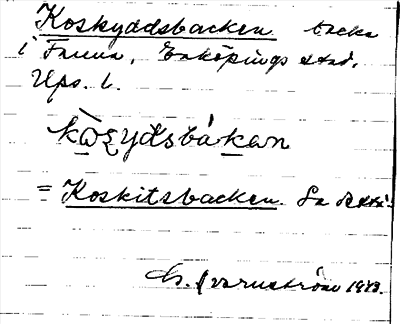 Koskyddsbacken backe
i Fanna, Enköpings stad,
Ups. l.
kὼƹydsbákan
= Koskitsbacken. Se detta!
G. Warnström 1943.